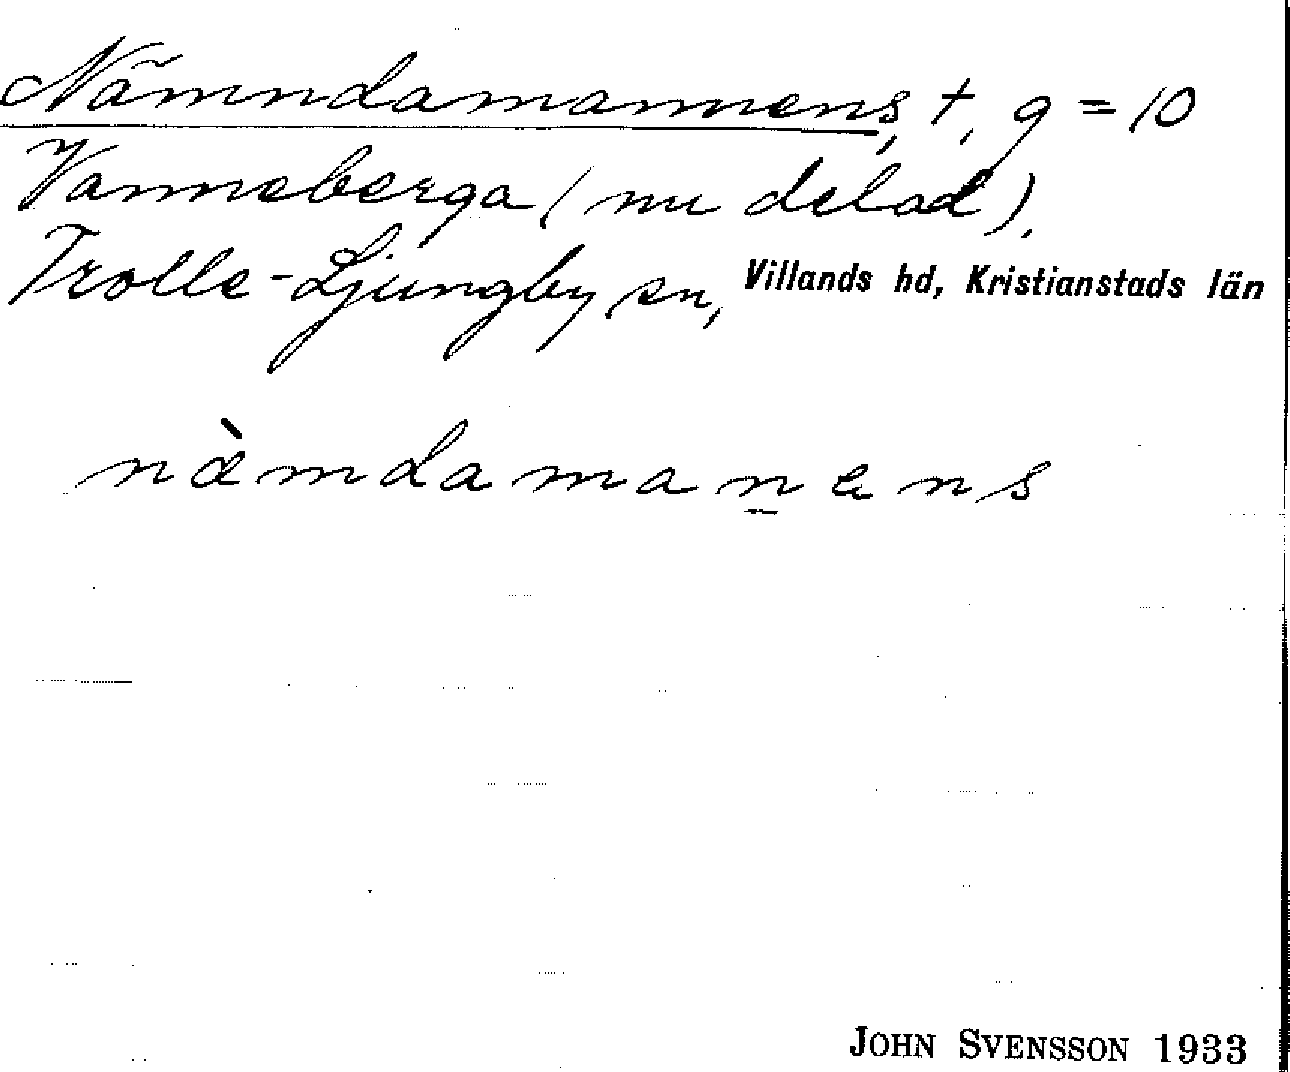 Nämndamannens, †, g = 10
Vanneberga (nu delad),
Trolle-Ljungby sn, Villands hd, Kristianstads län
næ̀mdamanens
JOHN SVENSSON 1933